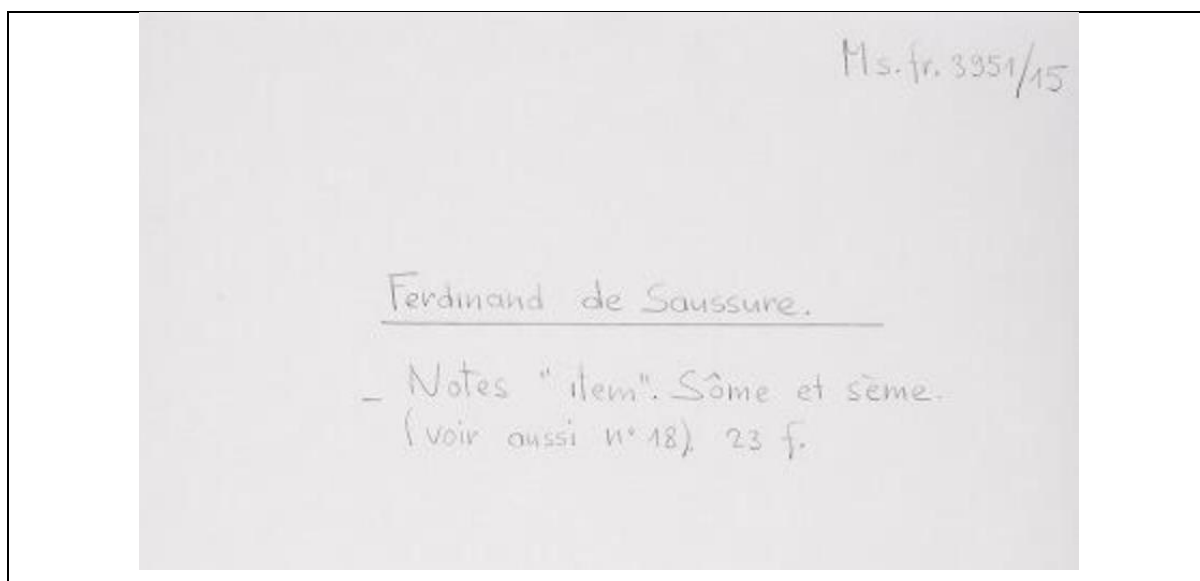 Ms. fr. 3951/15
Ferdinand de Saussure.
_ Notes "item". Sôme et sème.
(voir aussi n° 18). 23 f.